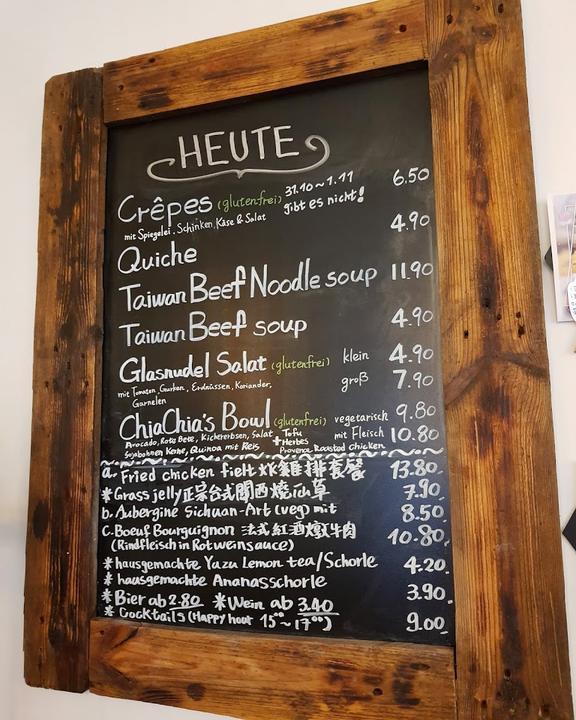 HEUTE
Crêpes (glutenfrei) 31.10~1.11 gibt es nicht! 6.50
mit Spiegelei, Schinken, Käse & Salat
Quiche 4.90
Taiwan Beef Noodle soup 11.90
Taiwan Beef soup 4.90
Glasnudel Salat (glutenfrei) klein 4.90
mit Tomaten, Gurken, Erdnüssen, Koriander, groß 7.90
Garnelen
ChiaChia's Bowl (glutenfrei) vegetarisch 9.80
Avocado, Rote Bete, Kichererbsen, Salat + Tofu Herbes mit Fleisch 10.80
Sojabohnen Kerne, Quinoa mit Reis Provence Roasted chicken
a. Fried chicken 炸雞排套餐 13.80
* Grass jelly 正宗台式 燒仙草 7.90
b. Aubergine Sichuan-Art (veg) mit 8.50
c. Boeuf Bourguignon 法式紅酒燉牛肉 10.80
(Rindfleisch in Rotweinsauce)
* hausgemachte Yuzu Lemon tea/Schorle 4.20
* hausgemachte Ananasschorle 3.90
* Bier ab 2.80 * Wein ab 3.40
* Cocktails (Happy hour 15°°~17°°) 9.00